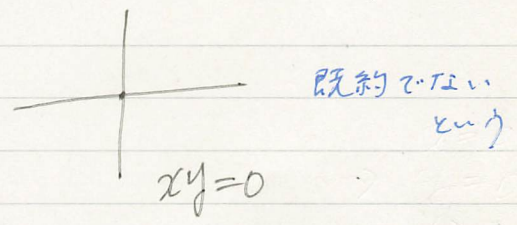 既約でない
という
xy=0